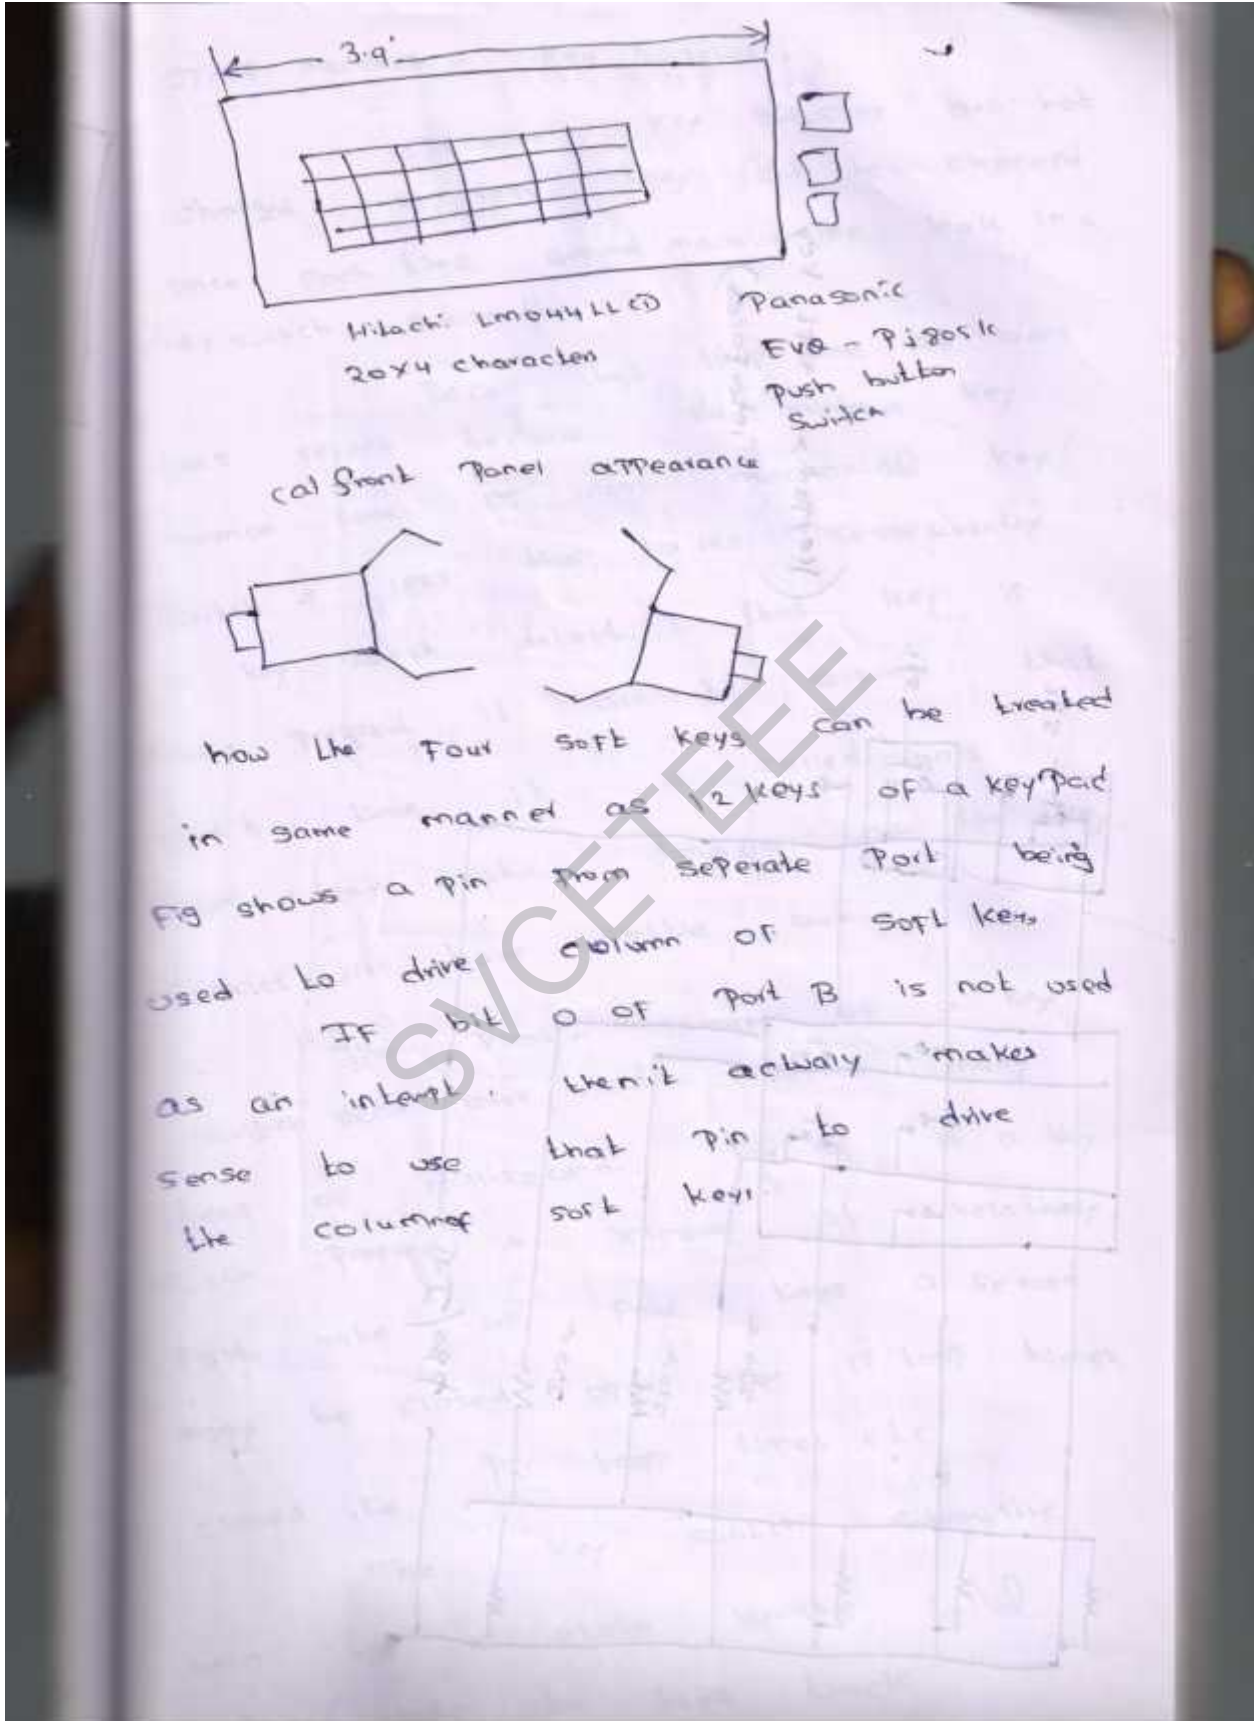 3.9"
Hitachi LM044LLCD
20x4 characters
Panasonic
EVQ - PJ805K
Push button
Switch
(a) front Panel appearance
how the Four soft keys can be treated
in same manner as 12 keys of a keypad
Fig shows a pin from seperate Port being
used to drive column of soft keys
IF bit 0 of Port B is not used
as an interrpt. then it actualy makes
sense to use that pin to drive
the columnof soft keys
SVCETEEE